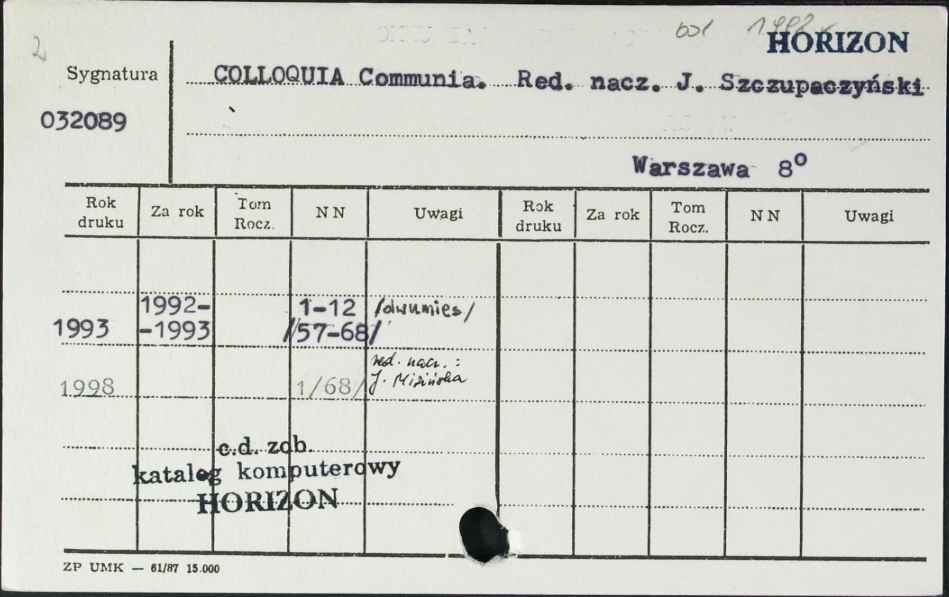 2
od 1992 r.
HORIZON
Sygnatura
COLLOQUIA Communia. Red. nacz. J. Szczupaczyński
032089
Warszawa 8°
Rok druku Za rok Tom Rocz. NN Uwagi Rok druku Za rok Tom Rocz. NN Uwagi
1992- 1-12 /dwumies/
1993 -1993 /57-68/
red. nacz. :
1998 1/68/ J. Mizińska
c.d. zob.
katalog komputerowy
HORIZON
ZP UMK — 61/87 15.000